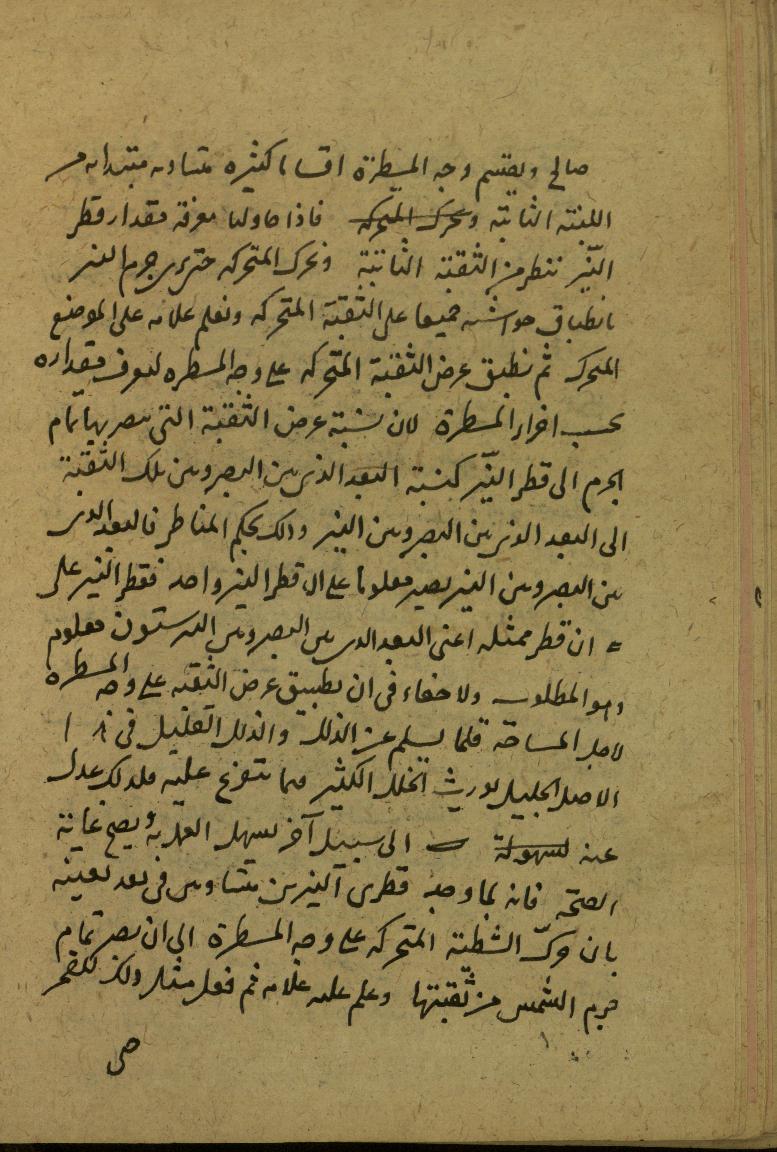 صالح ويقسم وجه المسطرة اقساما كثيره متساويه مبتداه من
اللبنة الثابتة وتحرك المتحركه فاذا حاولنا معرفة مقدار قطر
النيّر ننظر من الثقبة الثابتة ونحرك المتحركه حتى يرى جرم النير
بانطباق حواشيه جميعا على الثقبة المتحركه ونعلم علامه على الموضع
المتحرك ثم نطبق عرض الثقبة المتحركه على وجه المسطره ليعرف مقداره
بحسب اجزاء المسطرة لان نسبة عرض الثقبة التى يبصر بها تمام
الجرم الى قطر النيّر كنسبة البعد الذى بين البصر وبين تلك الثقبة
الى البعد الذى بين البصر وبين النير وذلك بحكم المناظر فالبعد الذى
بين البصر وبين النير يصير معلوما على ان قطر النير واحد فقطر النير على
ان قطر ممثله اعنى البعد الذى بين البصر وبين ستون معلوم
وهو المطلوب ولا خفاء فى ان تطبيق عرض الثقبه على وجه المسطره
لاجل المساحة قلما يسلم عن الزلل والزلل القليل فى
الاصل الجليل يورث الخلل الكثير فيما يتفرع عليه فلذلك عدل
عنه لسهولة الى سبيل آخر يسهل العمل به ويصح غاية
الصحة فانه لما وجد قطرى النيرين متساويين فى بعد بعينه
بان حرّك الشظية المتحركه على وجه المسطرة الى ان يبصر تمام
جرم الشمس من ثقبتها وعلم عليه علامه ثم فعل مثل ذلك للقمر